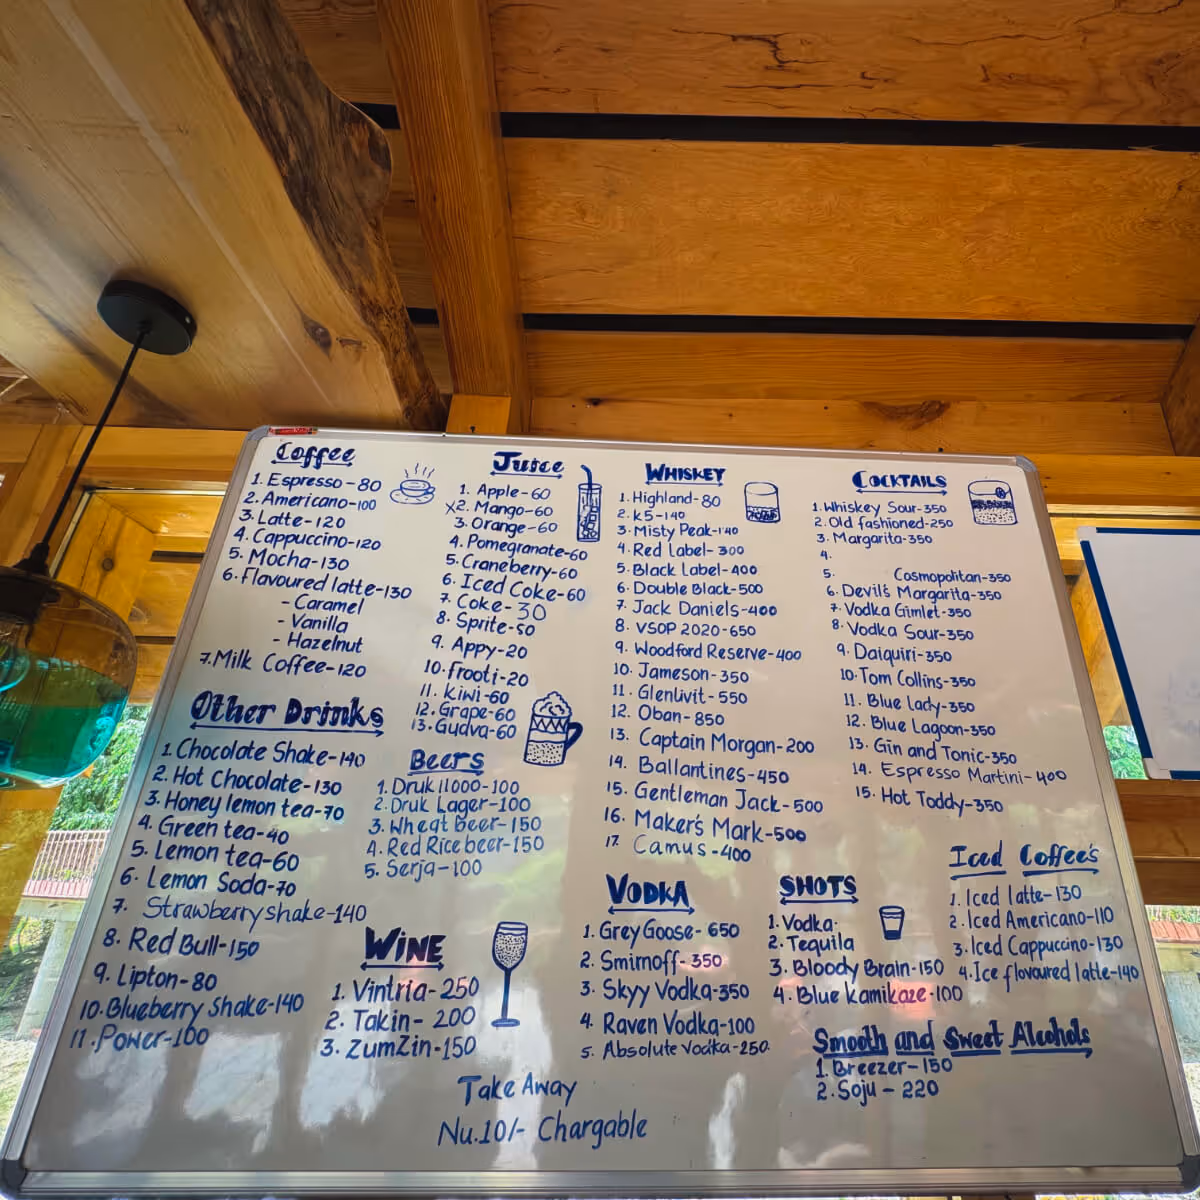 Coffee
1. Espresso - 80
2. Americano-100
3. Latte-120
4. Cappuccino-120
5. Mocha-130
6. flavoured latte-130
- Caramel
- Vanilla
- Hazelnut
7. Milk Coffee-120
Other Drinks
1. Chocolate Shake-140
2. Hot Chocolate-130
3. Honey lemon tea-70
4. Green tea-40
5. Lemon tea-60
6. Lemon Soda-70
7. Strawberry shake-140
8. Red Bull-150
9. Lipton-80
10. Blueberry Shake-140
11. Power-100
Juice
1. Apple-60
x2. Mango-60
3. Orange-60
4. Pomegranate-60
5. Craneberry-60
6. Iced Coke-60
7. Coke-30
8. Sprite-50
9. Appy-20
10. Frooti-20
11. Kiwi-60
12. Grape-60
13. Guava-60
Beers
1. Druk 11000-100
2. Druk Lager-100
3. Wheat beer-150
4. Red Rice beer-150
5. Serja-100
Wine
1. Vintria-250
2. Takin-200
3. ZumZin-150
Whiskey
1. Highland-80
2. K5-140
3. Misty Peak-140
4. Red Label-300
5. Black Label-400
6. Double Black-500
7. Jack Daniels-400
8. VSOP 2020-650
9. Woodford Reserve-400
10. Jameson-350
11. Glenlivit-550
12. Oban-850
13. Captain Morgan-200
14. Ballantines-450
15. Gentleman Jack-500
16. Maker's Mark-500
17. Camus-400
Vodka
1. Grey Goose-650
2. Smirnoff-350
3. Skyy Vodka-350
4. Raven Vodka-100
5. Absolute Vodka-250
Cocktails
1. Whiskey Sour-350
2. Old fashioned-250
3. Margarita-350
4.
5. Cosmopolitan-350
6. Devil's Margarita-350
7. Vodka Gimlet-350
8. Vodka Sour-350
9. Daiquiri-350
10. Tom Collins-350
11. Blue Lady-350
12. Blue Lagoon-350
13. Gin and Tonic-350
14. Espresso Martini-400
15. Hot Toddy-350
Shots
1. Vodka-
2. Tequila
3. Bloody Brain-150
4. Blue Kamikaze-100
Iced Coffee's
1. Iced latte-130
2. Iced Americano-110
3. Iced Cappuccino-130
4. Ice flavoured latte-140
Smooth and Sweet Alcohols
1. Breezer-150
2. Soju - 220
Take Away
Nu.10/- Chargable